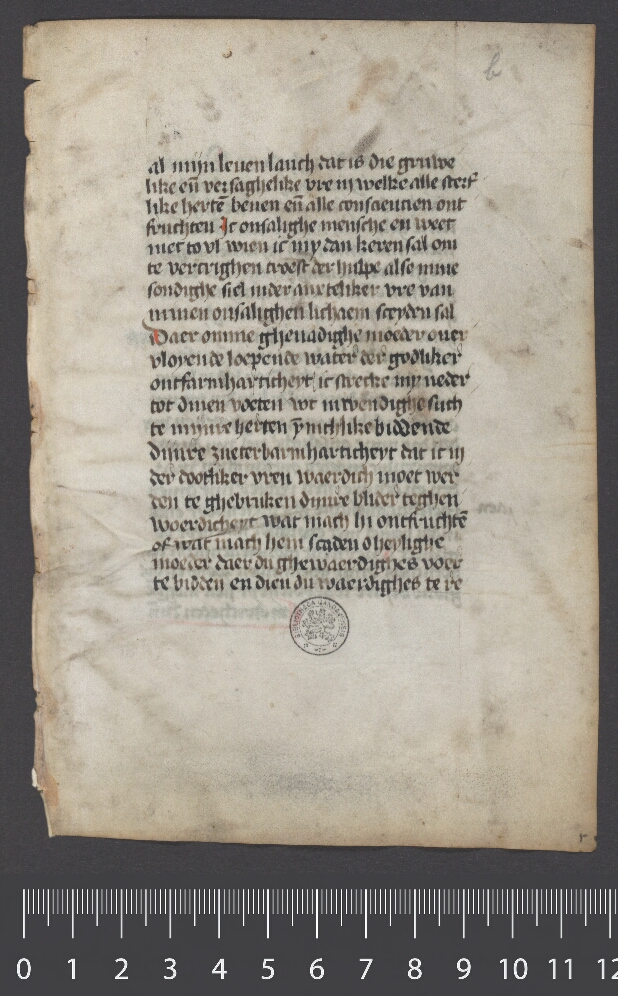 b
al mijn leuen lanch dat is die gruwe
like en̄ versaghelike vre in welke alle sterf
like hertē beuen en̄ alle consciencien ont
fruchten Ic onsalighe mensche en weet
niet to vl wien ic my dan keren sal om
te vercrighen troest der hulpe als mine
sondighe siel in der anxteliker vre van
minen onsalighen lichaem sceyden sal
Daer omme ghenadighe moeder ouer
vloyende loepende water der godliker
ontfarmharticheyt ic strecke my neder
tot dinen voeten wt inwendighe such
te mynre herten ynichlike biddende
dijnre zueter barmharticheyt dat ic in
der dootliker vren waerdich moet wer
den te ghebruken dijnre blider teghen
woerdicheyt wat mach hi ontfruchtē
of wat mach hem scaden o heylighe
moeder daer du ghewaerdighes voer
te bidden en dien du waerdighes te re
BIBLIOTHECA GANDAVENSIS
0 1 2 3 4 5 6 7 8 9 10 11 12